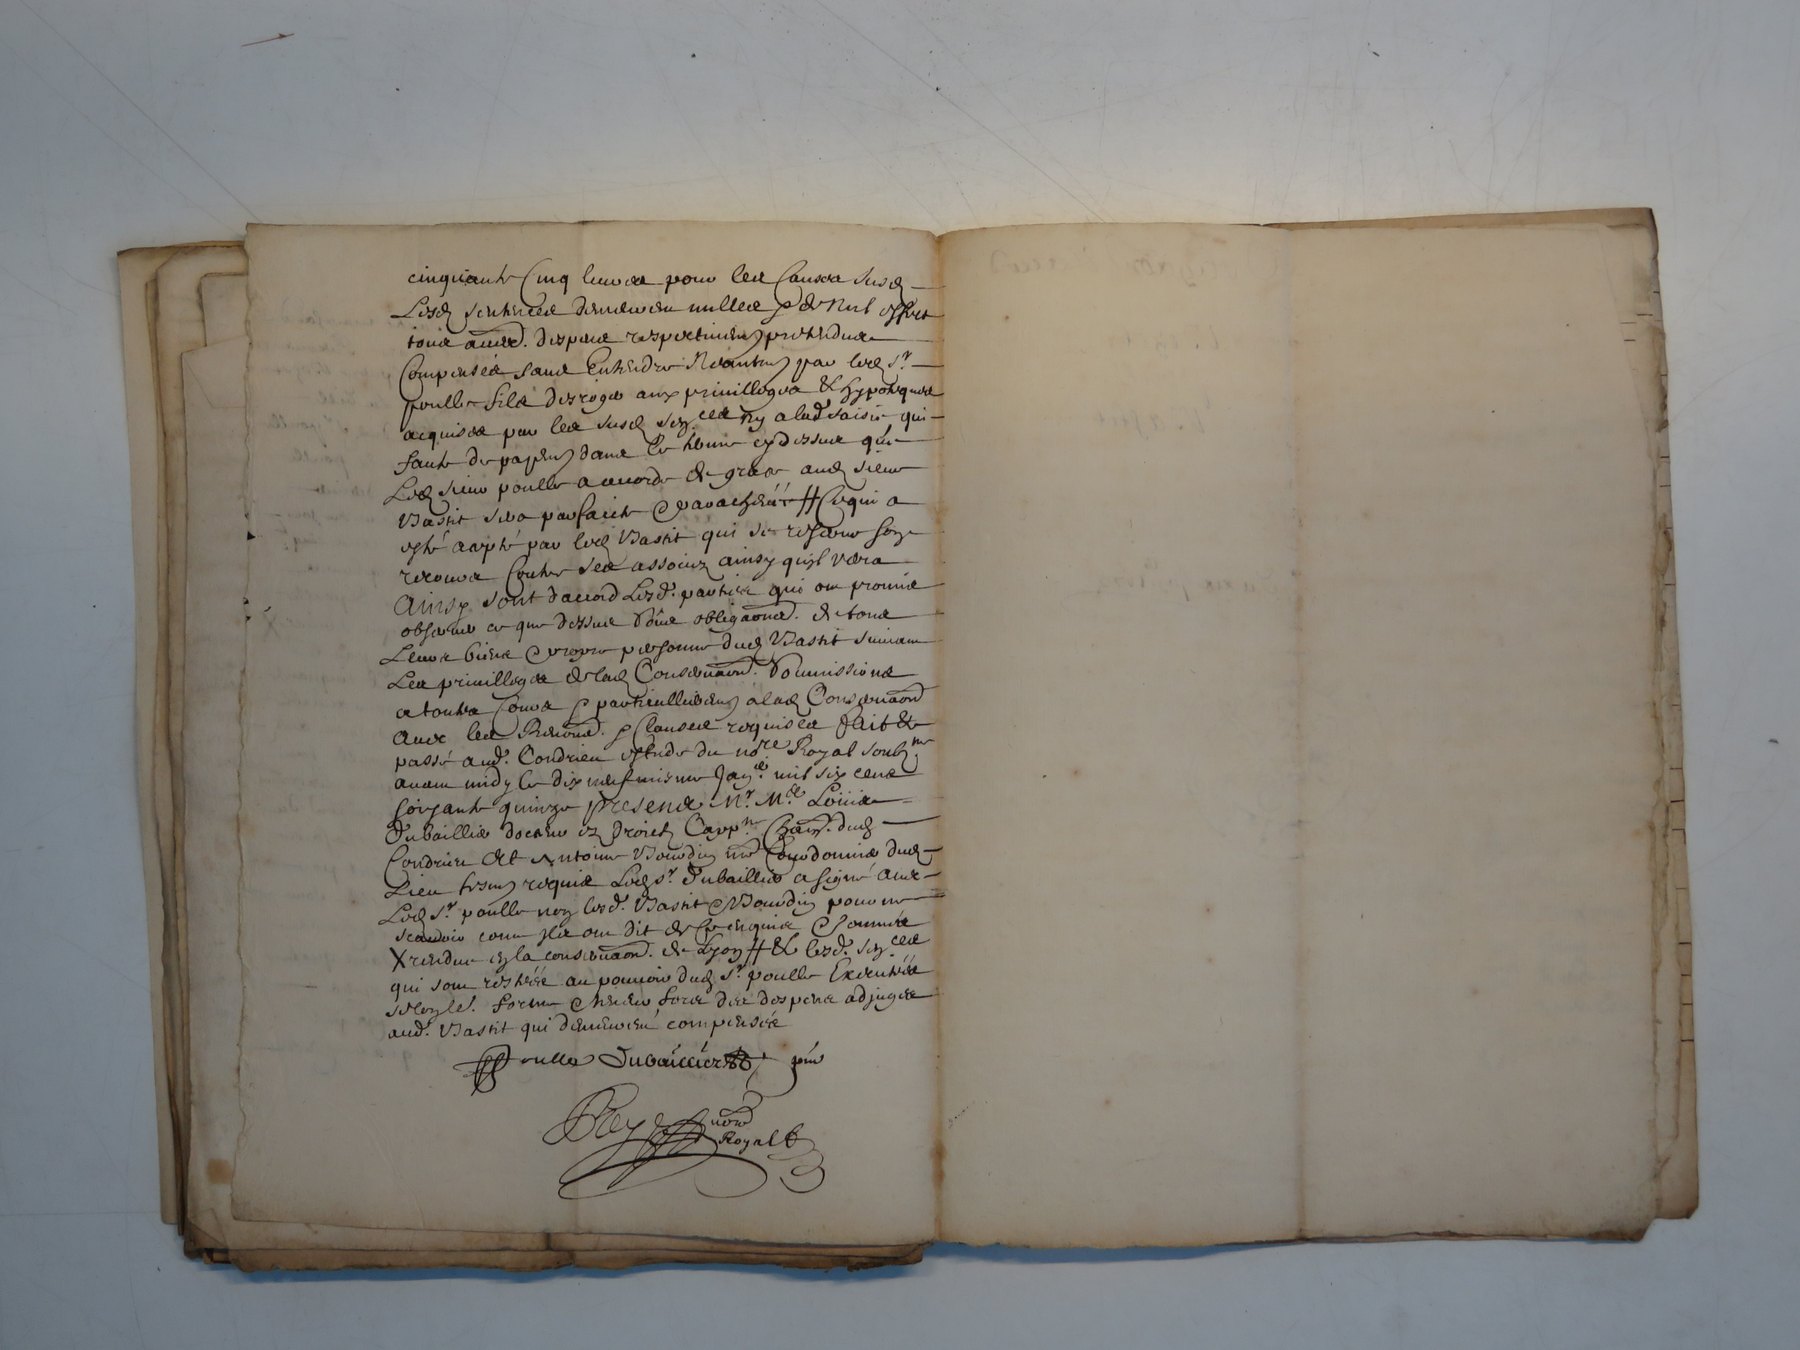 cinquante Cinq livres pour les Causes susd
Lesd sentences demeurent nulles & de nul effect
tous autres despens respectivem pretendus
Compensés sans Entendre Neantm par led Sr
poulle fils desroger aux privilleges & hypoteques
acquises par les susd sen.ces ny a lad saisie qui
faute de payem dans le terme cy dessus que
Led sieur poulle a accordé de grace aud sieur
Bastit sera parfaicte & parachevée # Ce qui a
esté accepté par led Bastit qui se reserve son
recours Contre ses associez ainsy quil verra
Ainsy sont d'accord Lesd. parties qui ont promis
observer ce que dessus obligaons. de tous
Leurs biens & propre personne dud Bastit suivant
Les privilleges de lad Conservaon. Soumissions
a toutes Cours & particullierem a lad Conservaon
Avec les Renons. & Clauses requises fait &
passé aud. Condrieu estude du nore Royal soubz.ne
avant midy le dix neufviesme Janv. mil six cens
soixante quinze presens Mr. Me Louis
Dubaillier docteur ez droict Capp.ne dud
Condrieu Et Antoine Bourdin me Cordonnier dud
Lieu tesm requis Led Sr. Dubaillier a signé avec
Led Sr. poulle non lesd. Bastit & Bourdin pour ne
scavoir comme ils ont dit de ce enquis & sommés
X rendue en la conservaon. de Lyon # & lesd. sen.ces
qui sont restées au pouvoir dud Sr. poulle Executées
selon les. forme & teneur fors des despens adjugés
aud. Bastit qui demeurent compensés
Poulle Dubaillier
Royal